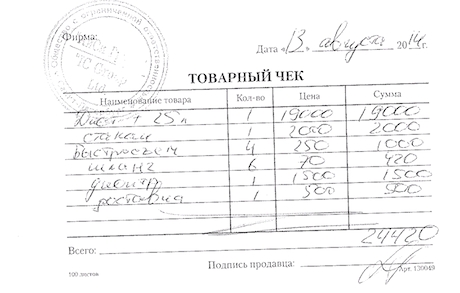 Общество с ограниченной ответственностью
"TC Group"
Ltd
Фирма:
Дата «13» август 2014г.
ТОВАРНЫЙ ЧЕК
Наименование товара Кол-во Цена Сумма
25л 1 19000 19000
стакан 1 2000 2000
Быстросъем 4 250 1000
шланг 6 70 420
1 1500 1500
доставка 1 500 500
Всего: 24420
Подпись продавца:
100 листов Арт. 130049